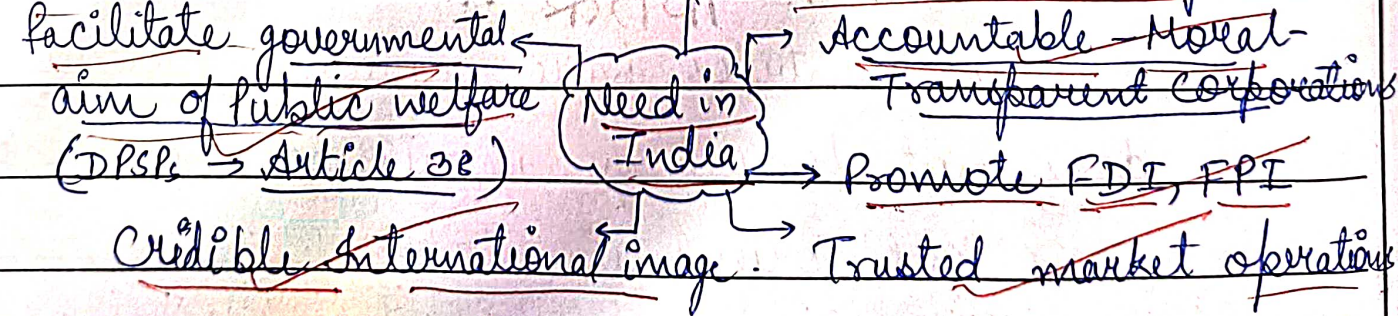 facilitate governmental
aim of Public welfare
(DPSPs → Article 38)
Need in
India
Accountable - Moral -
Transparent Corporations
Promote FDI, FPI
Credible International image.
Trusted market operations